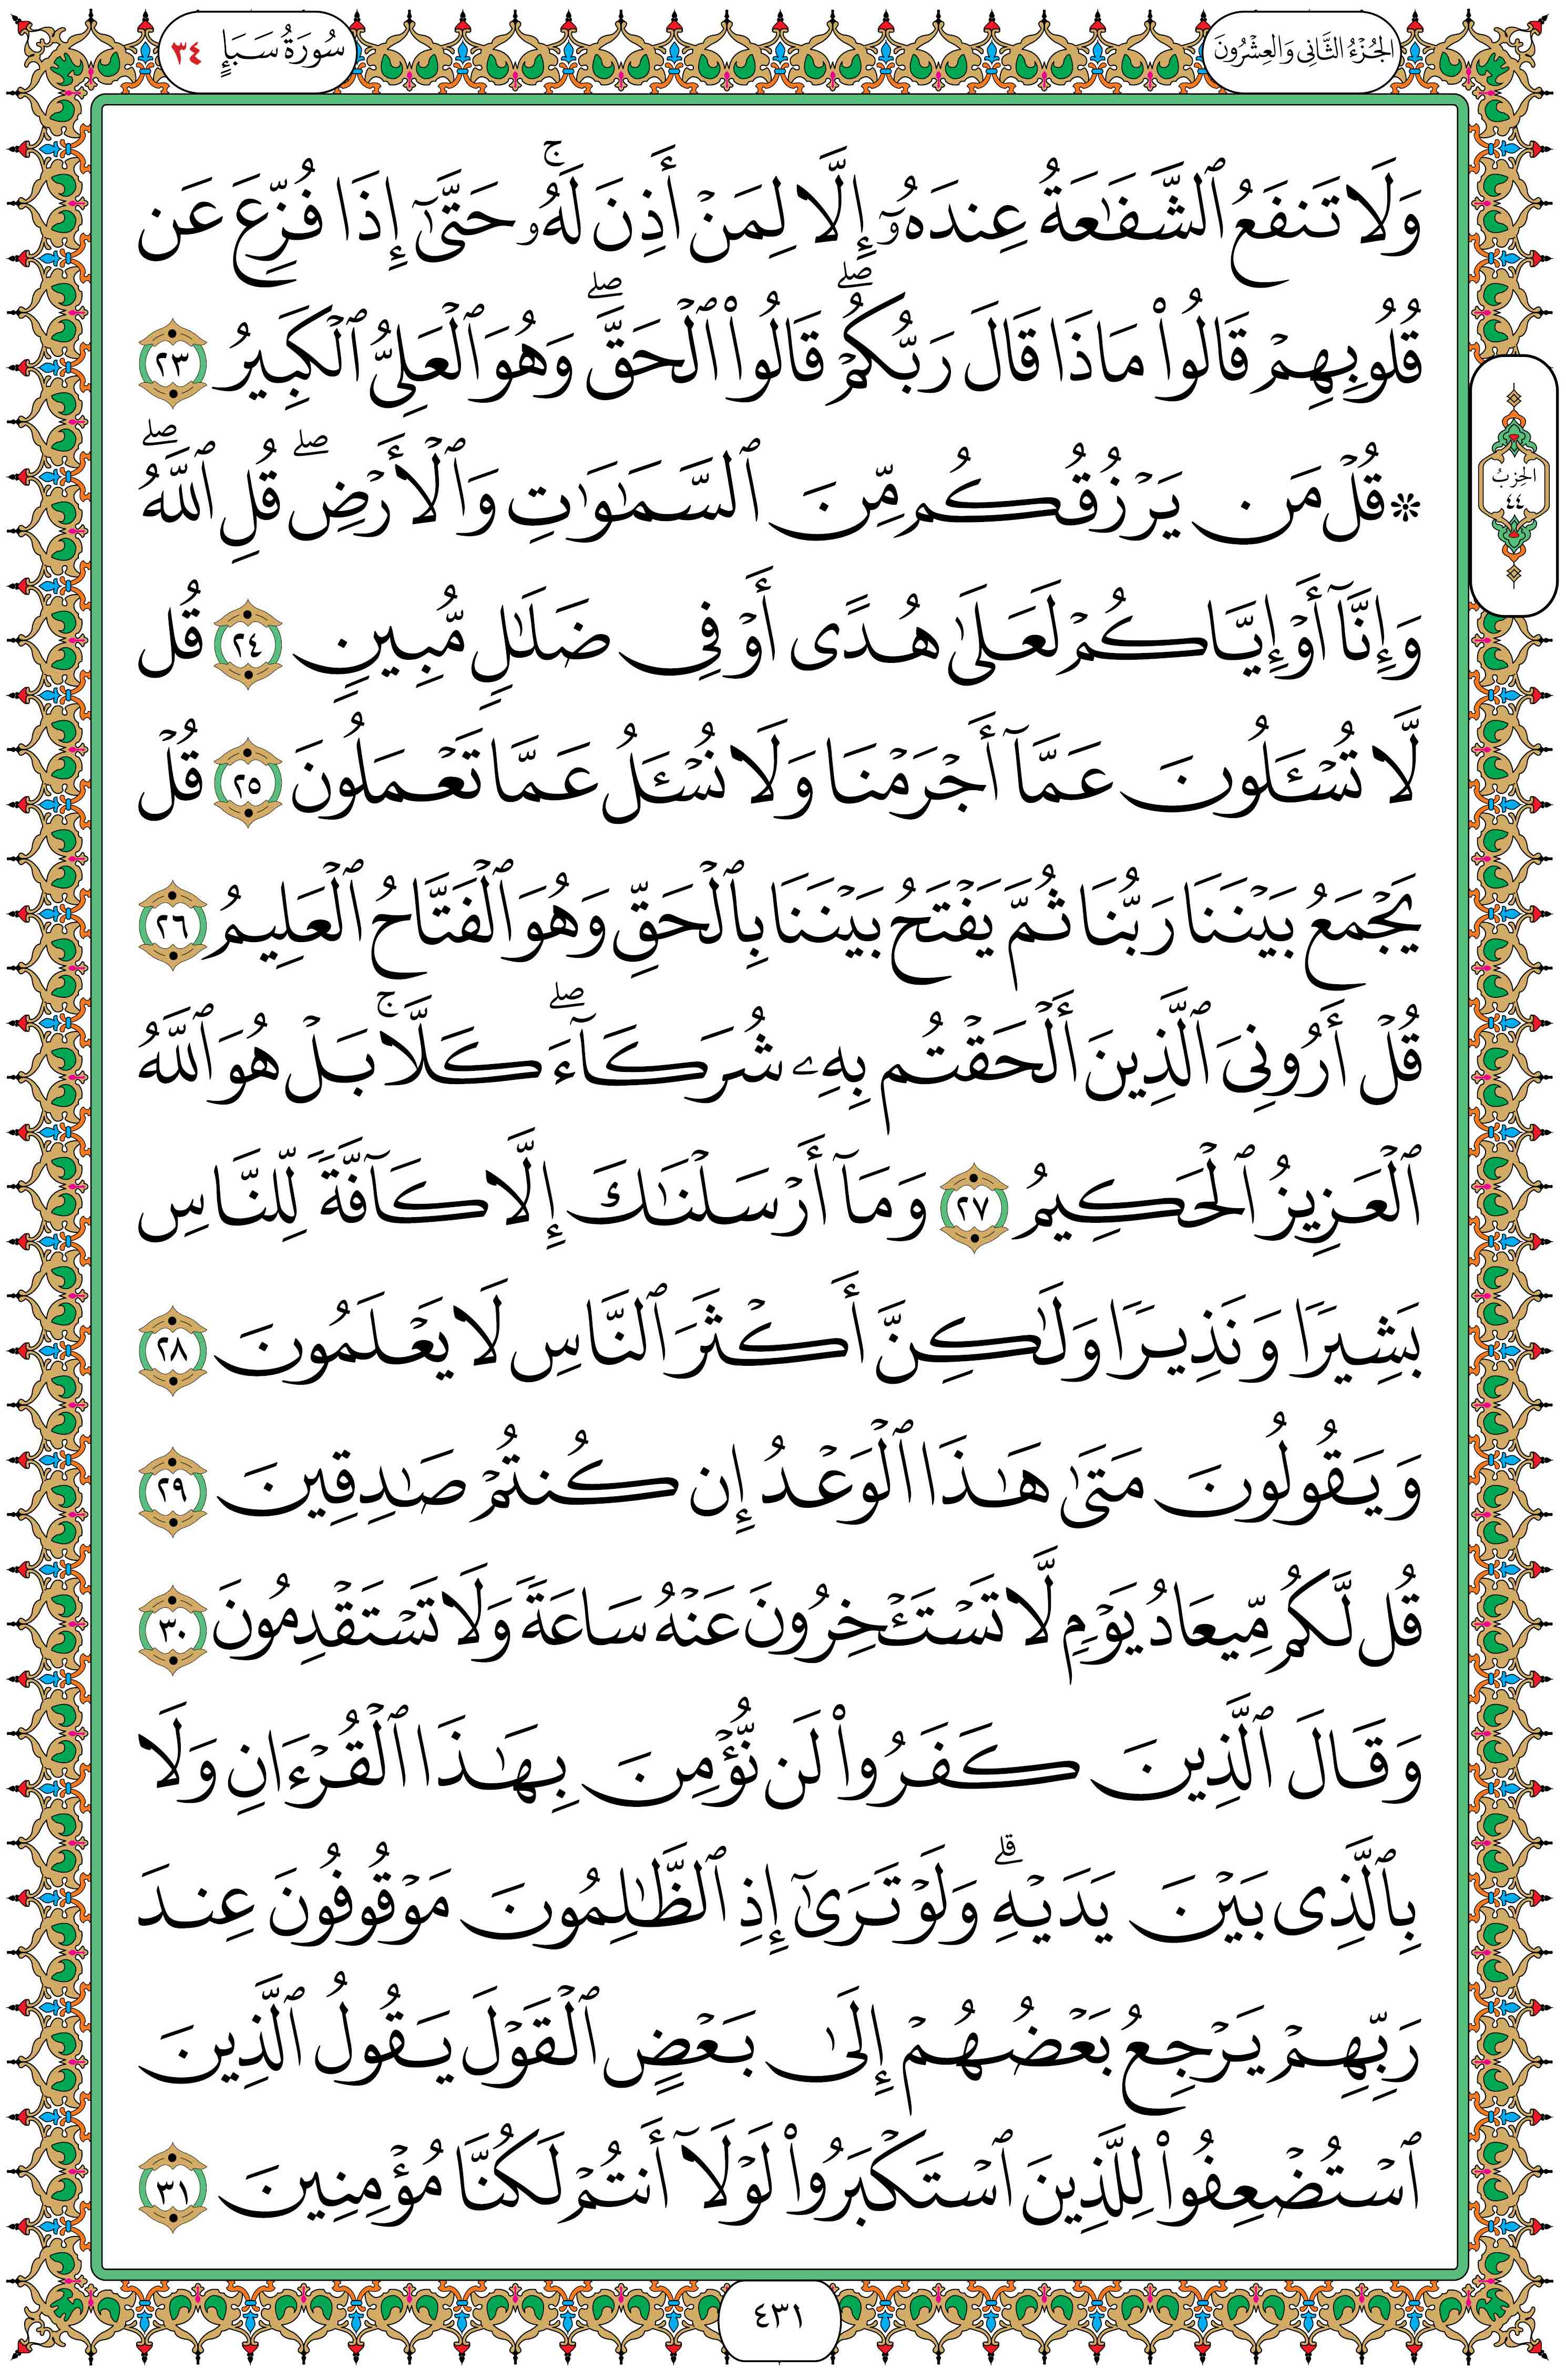 الجُزْءُ الثَّانِي وَالعِشْرُونَ
سُورَةُ سَبَإٍ ٣٤
وَلَا تَنفَعُ ٱلشَّفَٰعَةُ عِندَهُۥٓ إِلَّا لِمَنْ أَذِنَ لَهُۥۚ حَتَّىٰٓ إِذَا فُزِّعَ عَن
قُلُوبِهِمْ قَالُوا۟ مَاذَا قَالَ رَبُّكُمْۖ قَالُوا۟ ٱلْحَقَّۖ وَهُوَ ٱلْعَلِىُّ ٱلْكَبِيرُ ٢٣
۞ قُلْ مَن يَرْزُقُكُم مِّنَ ٱلسَّمَٰوَٰتِ وَٱلْأَرْضِۖ قُلِ ٱللَّهُۖ
وَإِنَّآ أَوْ إِيَّاكُمْ لَعَلَىٰ هُدًى أَوْ فِى ضَلَٰلٍ مُّبِينٍ ٢٤ قُل
لَّا تُسْـَٔلُونَ عَمَّآ أَجْرَمْنَا وَلَا نُسْـَٔلُ عَمَّا تَعْمَلُونَ ٢٥ قُلْ
يَجْمَعُ بَيْنَنَا رَبُّنَا ثُمَّ يَفْتَحُ بَيْنَنَا بِٱلْحَقِّ وَهُوَ ٱلْفَتَّاحُ ٱلْعَلِيمُ ٢٦
قُلْ أَرُونِىَ ٱلَّذِينَ أَلْحَقْتُم بِهِۦ شُرَكَآءَۖ كَلَّاۚ بَلْ هُوَ ٱللَّهُ
ٱلْعَزِيزُ ٱلْحَكِيمُ ٢٧ وَمَآ أَرْسَلْنَٰكَ إِلَّا كَآفَّةً لِّلنَّاسِ
بَشِيرًا وَنَذِيرًا وَلَٰكِنَّ أَكْثَرَ ٱلنَّاسِ لَا يَعْلَمُونَ ٢٨
وَيَقُولُونَ مَتَىٰ هَٰذَا ٱلْوَعْدُ إِن كُنتُمْ صَٰدِقِينَ ٢٩
قُل لَّكُم مِّيعَادُ يَوْمٍ لَّا تَسْتَـْٔخِرُونَ عَنْهُ سَاعَةً وَلَا تَسْتَقْدِمُونَ ٣٠
وَقَالَ ٱلَّذِينَ كَفَرُوا۟ لَن نُّؤْمِنَ بِهَٰذَا ٱلْقُرْءَانِ وَلَا
بِٱلَّذِى بَيْنَ يَدَيْهِۗ وَلَوْ تَرَىٰٓ إِذِ ٱلظَّٰلِمُونَ مَوْقُوفُونَ عِندَ
رَبِّهِمْ يَرْجِعُ بَعْضُهُمْ إِلَىٰ بَعْضٍ ٱلْقَوْلَ يَقُولُ ٱلَّذِينَ
ٱسْتُضْعِفُوا۟ لِلَّذِينَ ٱسْتَكْبَرُوا۟ لَوْلَآ أَنتُمْ لَكُنَّا مُؤْمِنِينَ ٣١
الحِزْبُ
٤٤
٤٣١